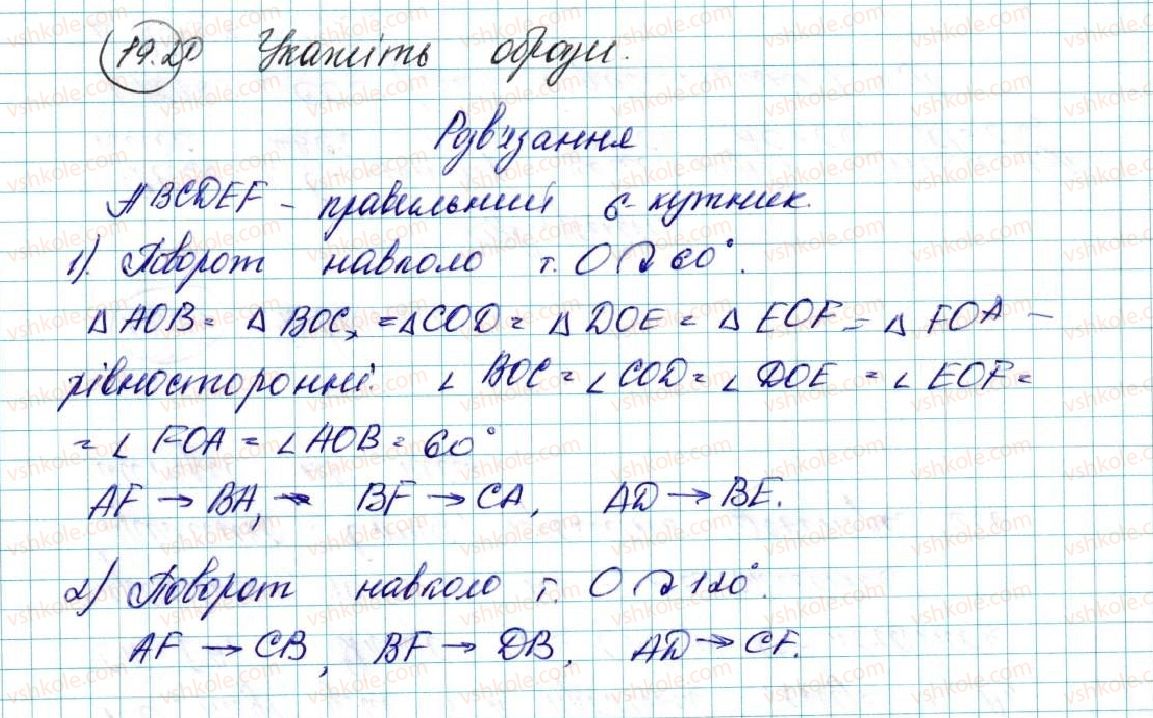 19.20 Укажіть образи.
Розв'язання
ABCDEF - правильний 6-кутник.
1). Поворот навколо т. O ↷ 60°.
△ AOB = △ BOC, = △ COD = △ DOE = △ EOF = △ FOA -
рівносторонні. ∠ BOC = ∠ COD = ∠ DOE = ∠ EOF =
= ∠ FOA = ∠ AOB = 60°
AF → BA, BF → CA, AD → BE.
2) Поворот навколо т. O ↷ 120°.
AF → CB, BF → DB, AD → CF.